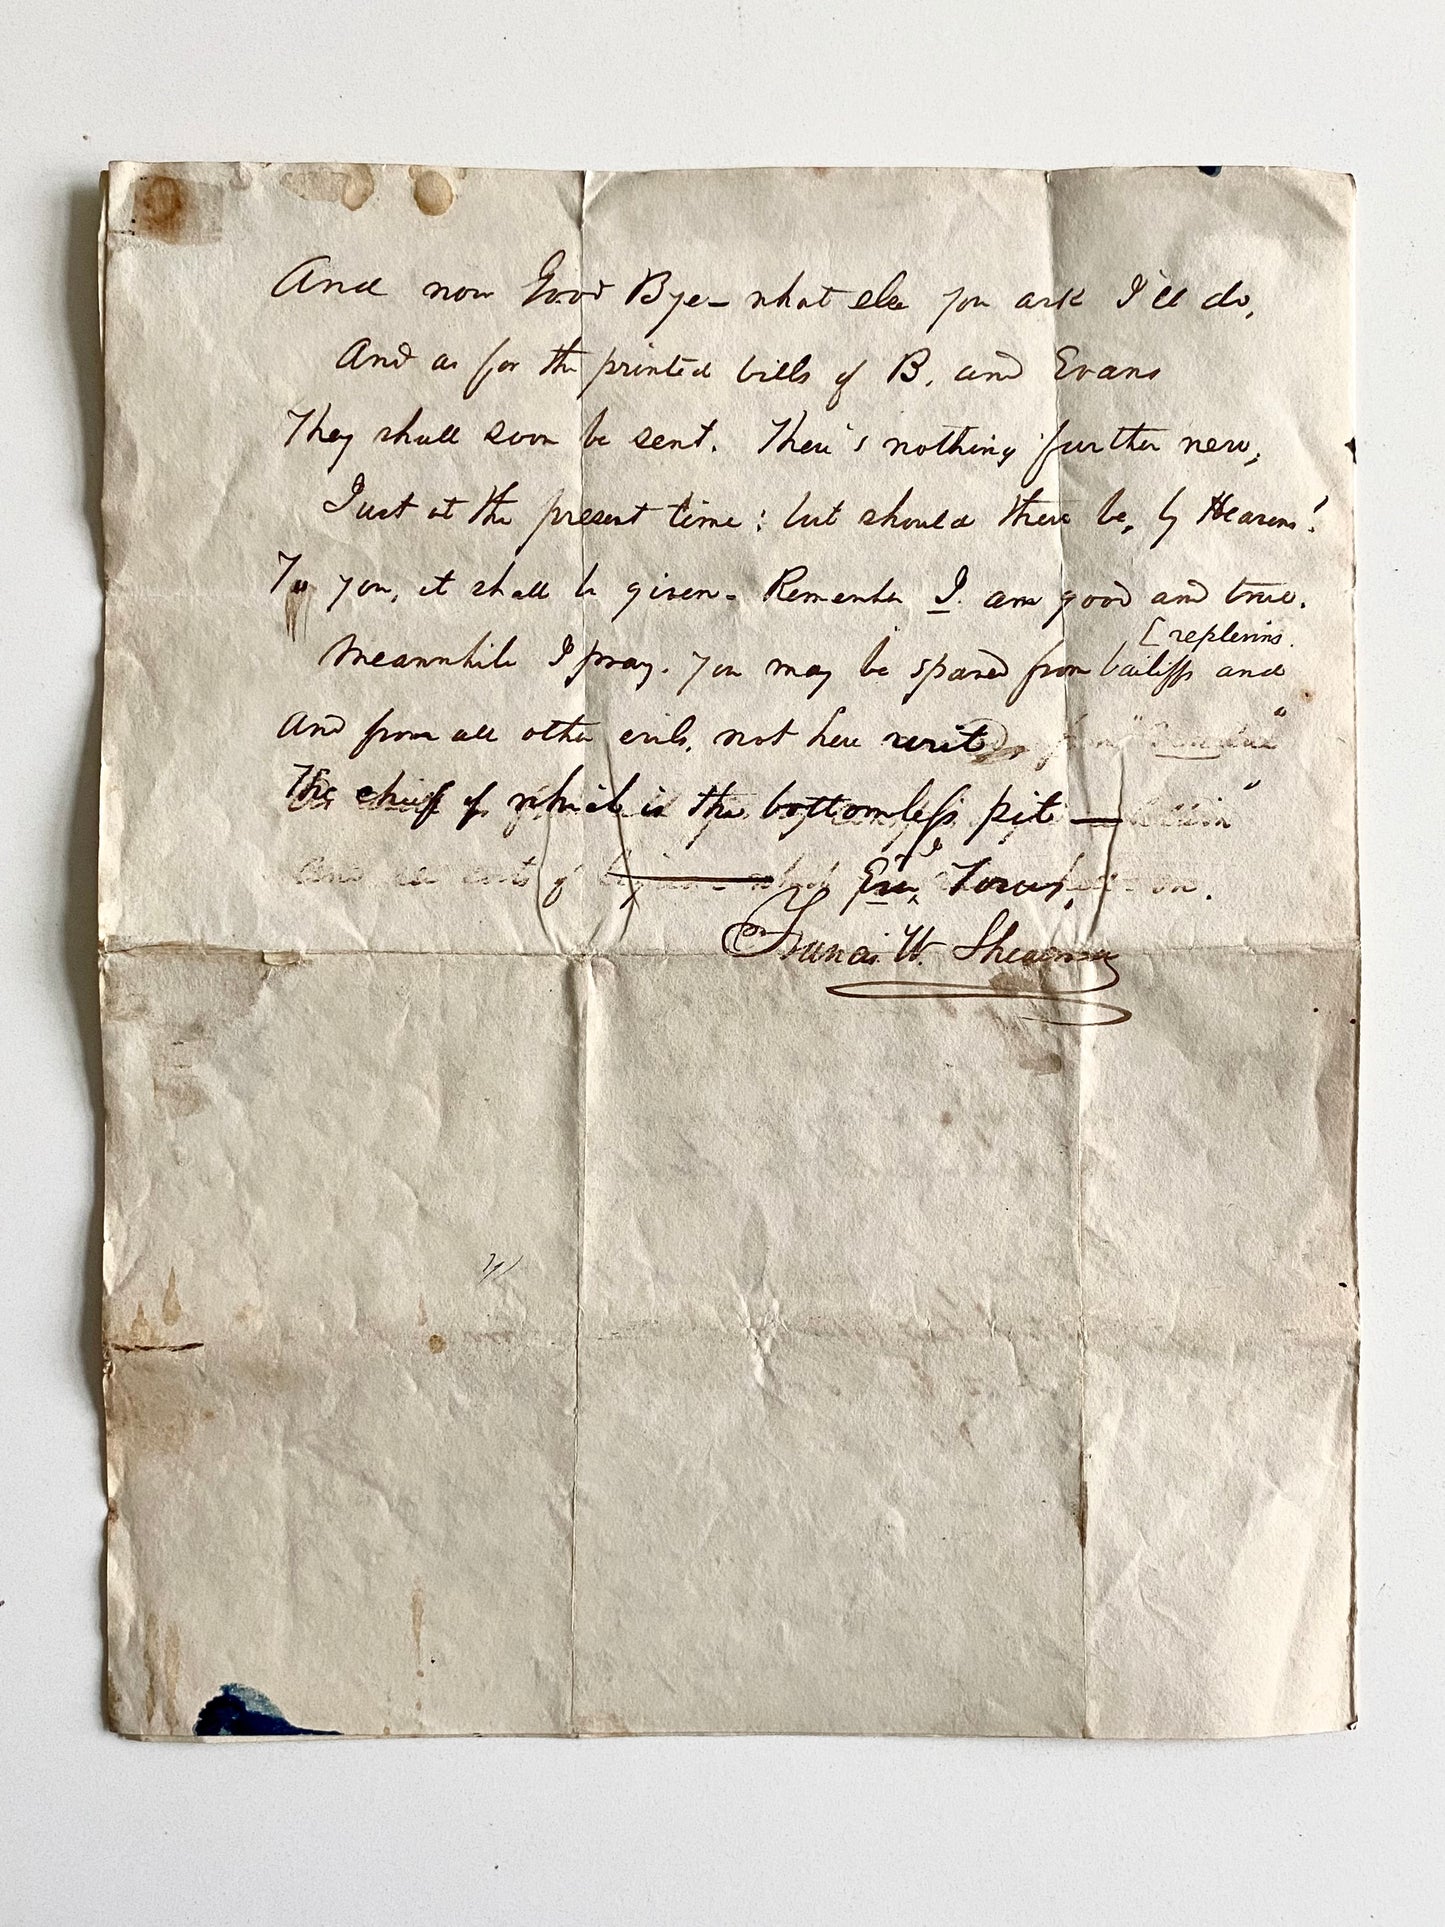 And now Good Bye - what else you ask I'll do,
And as for the printed bills of B. and Evans
They shall soon be sent. There's nothing further new,
Just at the present time: but should there be, by Heavens!
To you, it shall be given - Remember I am good and true.
[replevins.
Meanwhile I pray. you may be spared from bailiffs and
And from all other evils, not here writ
The chief of which is the bottomless pit —
and all sorts of Yours,
Francis W. Shearman